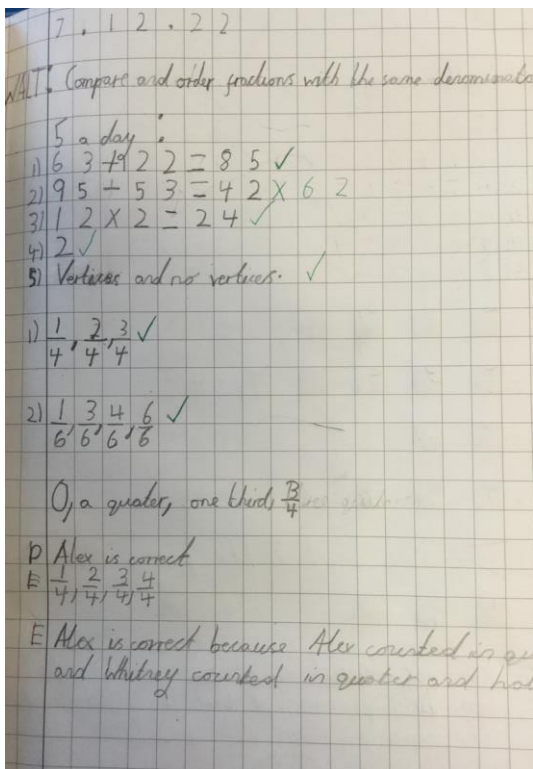 7.12.22
WALT: Compare and order fractions with the same denominato
5 a day:
1) 63+22=85 ✓
2) 95-53=42 x 62
3) 12x2=24 ✓
4) 2 ✓
5) Vertices and no vertices. ✓
1) 1/4, 2/4, 3/4 ✓
2) 1/6, 3/6, 4/6, 6/6 ✓
0, a quater, one third, 3/4
P Alex is correct
E 1/4, 2/4, 3/4, 4/4
E Alex is correct because Alex counted in qu
and Whitney counted in quater and ha